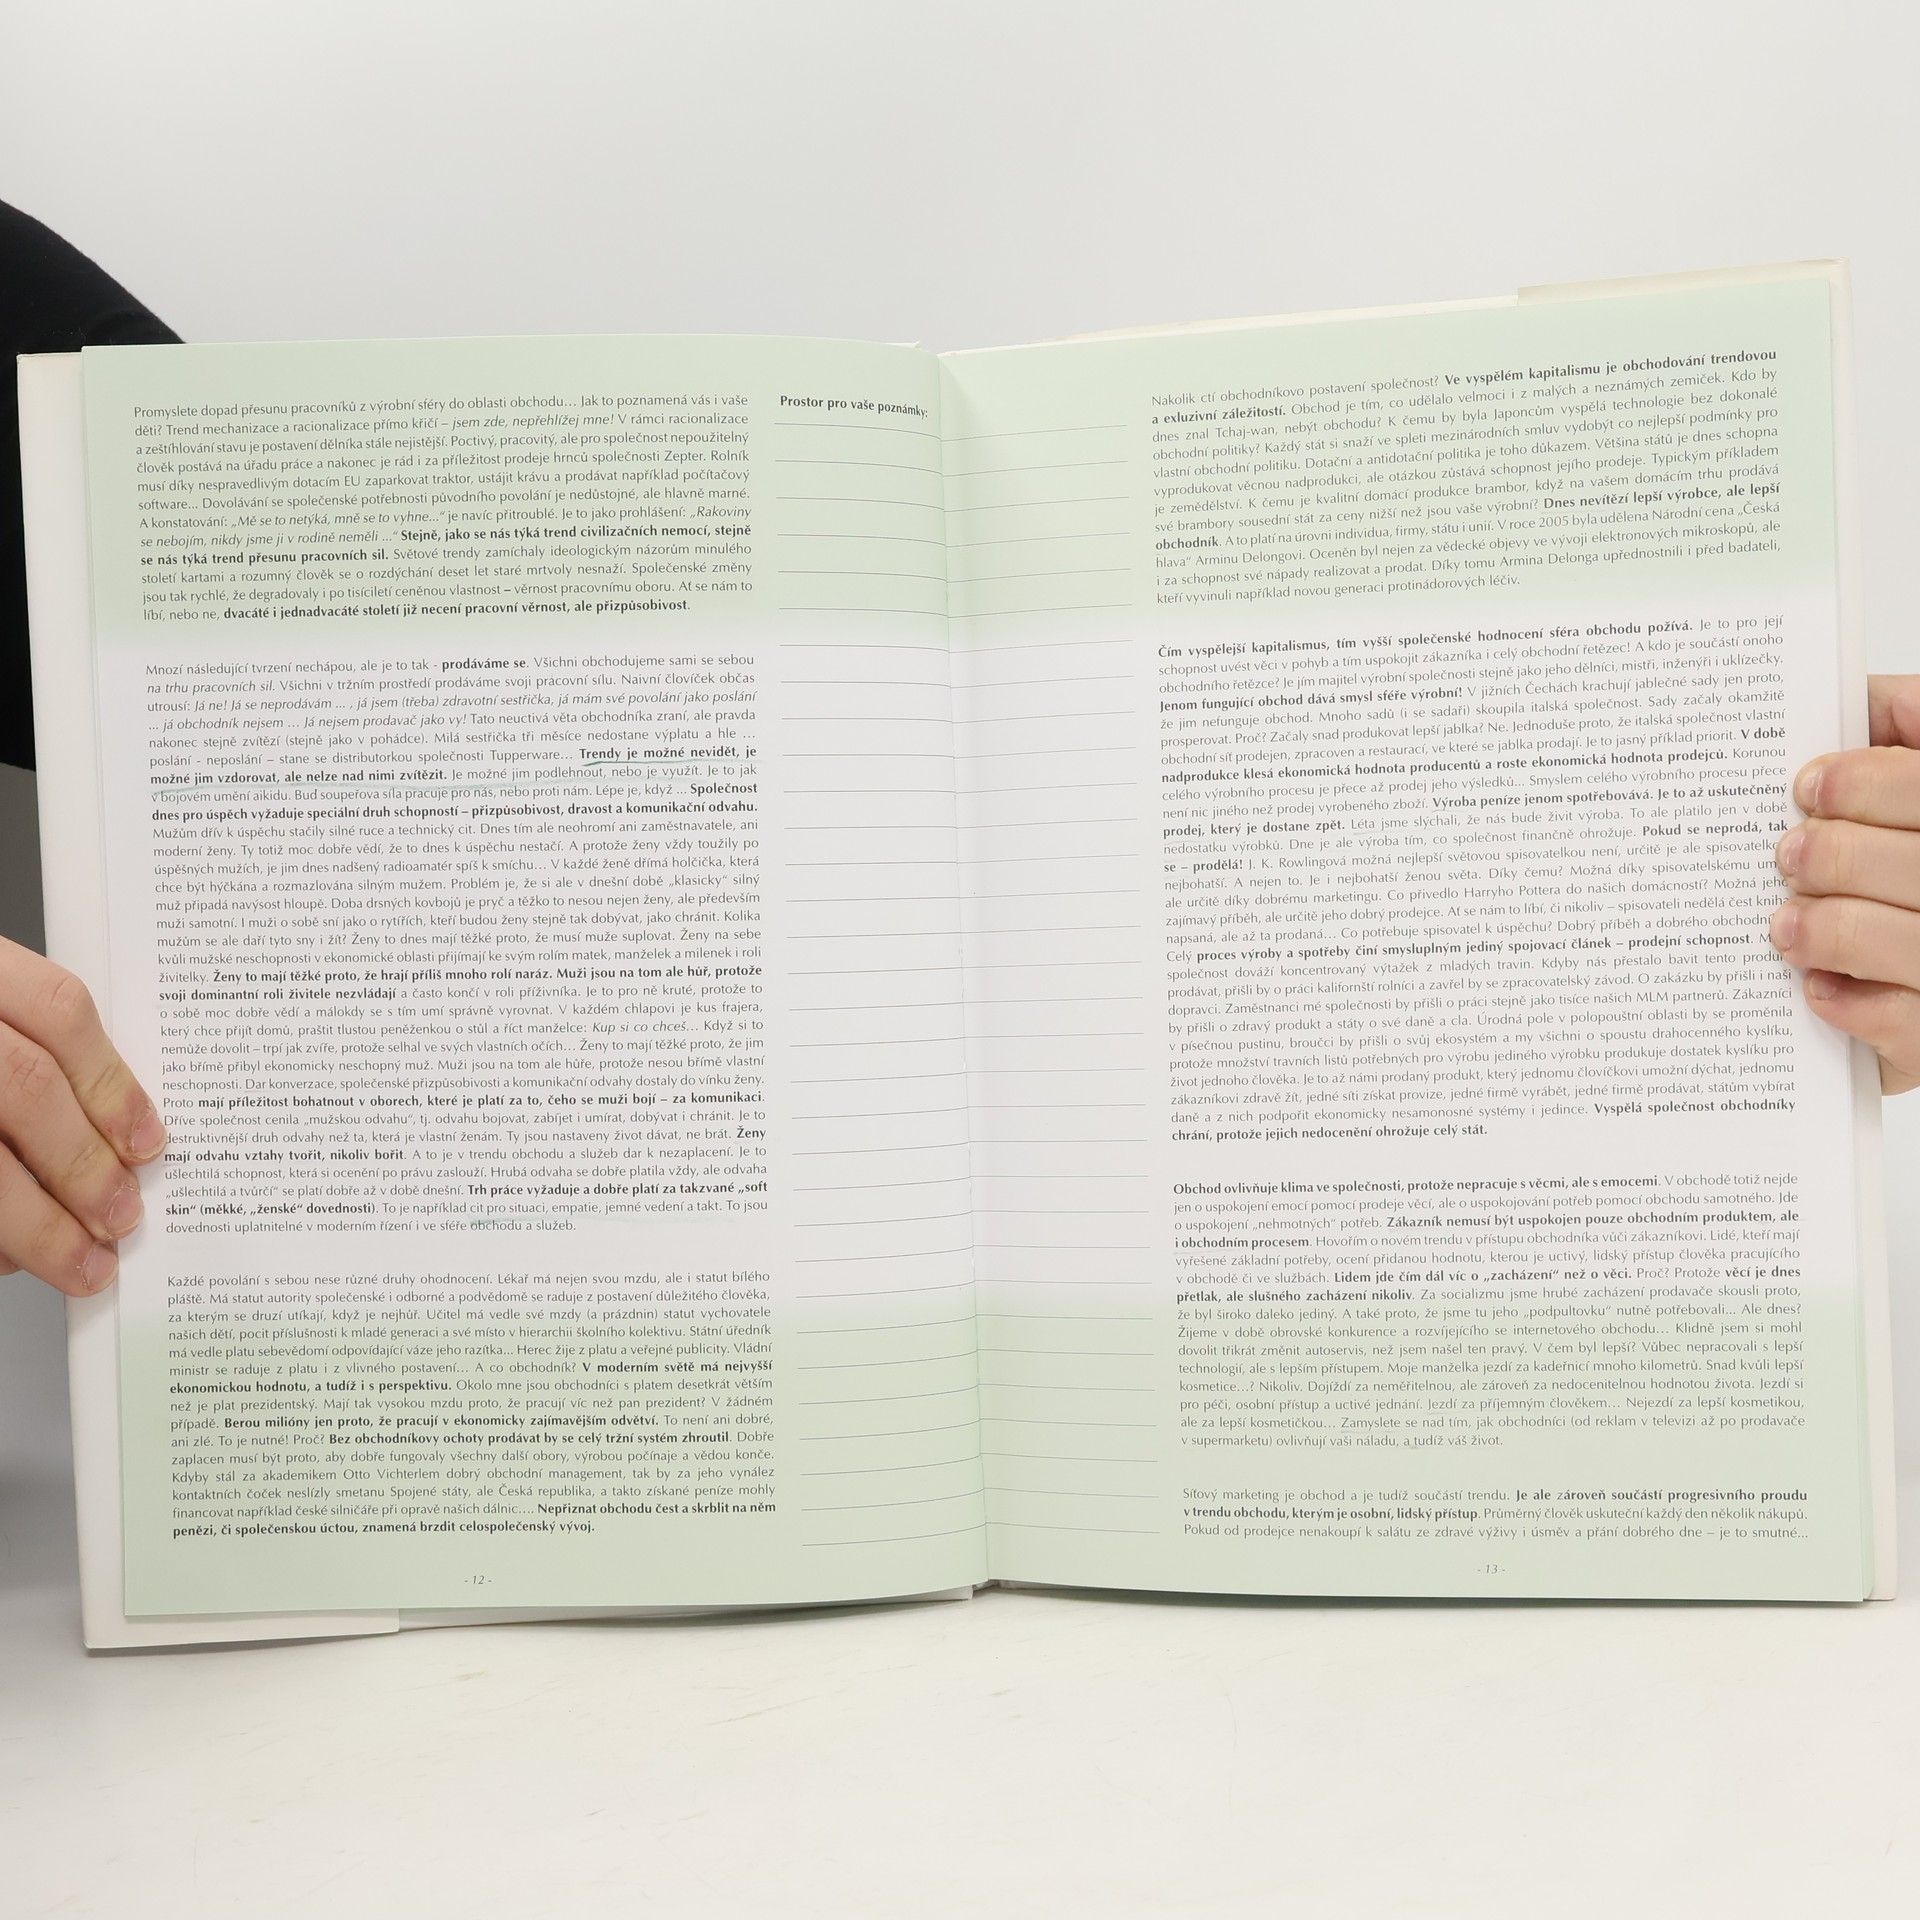 Promyslete dopad přesunu pracovníků z výrobní sféry do oblasti obchodu… Jak to poznamená vás i vaše
děti? Trend mechanizace a racionalizace přímo křičí – jsem zde, nepřehlížej mne! V rámci racionalizace
a zeštíhlování stavu je postavení dělníka stále nejistější. Poctivý, pracovitý, ale pro společnost nepoužitelný
člověk postává na úřadu práce a nakonec je rád i za příležitost prodeje hrnců společnosti Zepter. Rolník
musí díky nespravedlivým dotacím EU zaparkovat traktor, ustájit krávu a prodávat například počítačový
software... Dovolávání se společenské potřebnosti původního povolání je nedůstojné, ale hlavně marné.
A konstatování: „Mě se to netýká, mně se to vyhne...“ je navíc přitroublé. Je to jako prohlášení: „Rakoviny
se nebojím, nikdy jsme ji v rodině neměli ...“ Stejně, jako se nás týká trend civilizačních nemocí, stejně
se nás týká trend přesunu pracovních sil. Světové trendy zamíchaly ideologickým názorům minulého
století kartami a rozumný člověk se o rozdýchání deset let staré mrtvoly nesnaží. Společenské změny
jsou tak rychlé, že degradovaly i po tisíciletí ceněnou vlastnost – věrnost pracovnímu oboru. Ať se nám to
líbí, nebo ne, dvacáté i jednadvacáté století již necení pracovní věrnost, ale přizpůsobivost.
Mnozí následující tvrzení nechápou, ale je to tak - prodáváme se. Všichni obchodujeme sami se sebou
na trhu pracovních sil. Všichni v tržním prostředí prodáváme svoji pracovní sílu. Naivní človíček občas
utrousí: Já ne! Já se neprodávám ... , já jsem (třeba) zdravotní sestřička, já mám své povolání jako poslání
... já obchodník nejsem … Já nejsem prodavač jako vy! Tato neuctivá věta obchodníka zraní, ale pravda
nakonec stejně zvítězí (stejně jako v pohádce). Milá sestřička tři měsíce nedostane výplatu a hle …
poslání - neposlání – stane se distributorkou společnosti Tupperware… Trendy je možné nevidět, je
možné jim vzdorovat, ale nelze nad nimi zvítězit. Je možné jim podlehnout, nebo je využít. Je to jak
v bojovém umění aikidu. Buď soupeřova síla pracuje pro nás, nebo proti nám. Lépe je, když ... Společnost
dnes pro úspěch vyžaduje speciální druh schopností – přizpůsobivost, dravost a komunikační odvahu.
Mužům dřív k úspěchu stačily silné ruce a technický cit. Dnes tím ale neohromí ani zaměstnavatele, ani
moderní ženy. Ty totiž moc dobře vědí, že to dnes k úspěchu nestačí. A protože ženy vždy toužily po
úspěšných mužích, je jim dnes nadšený radioamatér spíš k smíchu… V každé ženě dřímá holčička, která
chce být hýčkána a rozmazlována silným mužem. Problém je, že si ale v dnešní době „klasicky“ silný
muž připadá navýsost hloupě. Doba drsných kovbojů je pryč a těžko to nesou nejen ženy, ale především
muži samotní. I muži o sobě sní jako o rytířích, kteří budou ženy stejně tak dobývat, jako chránit. Kolika
mužům se ale daří tyto sny i žít? Ženy to dnes mají těžké proto, že musí muže suplovat. Ženy na sebe
kvůli mužské neschopnosti v ekonomické oblasti přijímají ke svým rolím matek, manželek a milenek i roli
živitelky. Ženy to mají těžké proto, že hrají příliš mnoho rolí naráz. Muži jsou na tom ale hůř, protože
svoji dominantní roli živitele nezvládají a často končí v roli příživníka. Je to pro ně kruté, protože to
o sobě moc dobře vědí a málokdy se s tím umí správně vyrovnat. V každém chlapovi je kus frajera,
který chce přijít domů, praštit tlustou peněženkou o stůl a říct manželce: Kup si co chceš… Když si to
nemůže dovolit – trpí jak zvíře, protože selhal ve svých vlastních očích… Ženy to mají těžké proto, že jim
jako břímě přibyl ekonomicky neschopný muž. Muži jsou na tom ale hůře, protože nesou břímě vlastní
neschopnosti. Dar konverzace, společenské přizpůsobivosti a komunikační odvahy dostaly do vínku ženy.
Proto mají příležitost bohatnout v oborech, které je platí za to, čeho se muži bojí – za komunikaci.
Dříve společnost cenila „mužskou odvahu“, tj. odvahu bojovat, zabíjet i umírat, dobývat i chránit. Je to
destruktivnější druh odvahy než ta, která je vlastní ženám. Ty jsou nastaveny život dávat, ne brát. Ženy
mají odvahu vztahy tvořit, nikoliv bořit. A to je v trendu obchodu a služeb dar k nezaplacení. Je to
ušlechtilá schopnost, která si ocenění po právu zaslouží. Hrubá odvaha se dobře platila vždy, ale odvaha
„ušlechtilá a tvůrčí“ se platí dobře až v době dnešní. Trh práce vyžaduje a dobře platí za takzvané „soft
skin“ (měkké, „ženské“ dovednosti). To je například cit pro situaci, empatie, jemné vedení a takt. To jsou
dovednosti uplatnitelné v moderním řízení i ve sféře obchodu a služeb.
Každé povolání s sebou nese různé druhy ohodnocení. Lékař má nejen svou mzdu, ale i statut bílého
pláště. Má statut autority společenské i odborné a podvědomě se raduje z postavení důležitého člověka,
za kterým se druzí utíkají, když je nejhůř. Učitel má vedle své mzdy (a prázdnin) statut vychovatele
našich dětí, pocit příslušnosti k mladé generaci a své místo v hierarchii školního kolektivu. Státní úředník
má vedle platu sebevědomí odpovídající váze jeho razítka... Herec žije z platu a veřejné publicity. Vládní
ministr se raduje z platu i z vlivného postavení… A co obchodník? V moderním světě má nejvyšší
ekonomickou hodnotu, a tudíž i s perspektivu. Okolo mne jsou obchodníci s platem desetkrát větším
než je plat prezidentský. Mají tak vysokou mzdu proto, že pracují víc než pan prezident? V žádném
případě. Berou milióny jen proto, že pracují v ekonomicky zajímavějším odvětví. To není ani dobré,
ani zlé. To je nutné! Proč? Bez obchodníkovy ochoty prodávat by se celý tržní systém zhroutil. Dobře
zaplacen musí být proto, aby dobře fungovaly všechny další obory, výrobou počínaje a vědou konče.
Kdyby stál za akademikem Otto Vichterlem dobrý obchodní management, tak by za jeho vynález
kontaktních čoček neslízly smetanu Spojené státy, ale Česká republika, a takto získané peníze mohly
financovat například české silničáře při opravě našich dálnic…. Nepřiznat obchodu čest a skrblit na něm
penězi, či společenskou úctou, znamená brzdit celospolečenský vývoj.
- 12 -
Prostor pro vaše poznámky:
Nakolik ctí obchodníkovo postavení společnost? Ve vyspělém kapitalismu je obchodování trendovou
a exluzivní záležitostí. Obchod je tím, co udělalo velmoci i z malých a neznámých zemiček. Kdo by
dnes znal Tchaj-wan, nebýt obchodu? K čemu by byla Japoncům vyspělá technologie bez dokonalé
obchodní politiky? Každý stát si snaží ve spleti mezinárodních smluv vydobýt co nejlepší podmínky pro
vlastní obchodní politiku. Dotační a antidotační politika je toho důkazem. Většina států je dnes schopna
vyprodukovat věcnou nadprodukci, ale otázkou zůstává schopnost jejího prodeje. Typickým příkladem
je zemědělství. K čemu je kvalitní domácí produkce brambor, když na vašem domácím trhu prodává
své brambory sousední stát za ceny nižší než jsou vaše výrobní? Dnes nevítězí lepší výrobce, ale lepší
obchodník. A to platí na úrovni individua, firmy, státu i unií. V roce 2005 byla udělena Národní cena „Česká
hlava“ Arminu Delongovi. Oceněn byl nejen za vědecké objevy ve vývoji elektronových mikroskopů, ale
i za schopnost své nápady realizovat a prodat. Díky tomu Armina Delonga upřednostnili i před badateli,
kteří vyvinuli například novou generaci protinádorových léčiv.
Čím vyspělejší kapitalismus, tím vyšší společenské hodnocení sféra obchodu požívá. Je to pro její
schopnost uvést věci v pohyb a tím uspokojit zákazníka i celý obchodní řetězec! A kdo je součástí onoho
obchodního řetězce? Je jím majitel výrobní společnosti stejně jako jeho dělníci, mistři, inženýři i uklízečky.
Jenom fungující obchod dává smysl sféře výrobní! V jižních Čechách krachují jablečné sady jen proto,
že jim nefunguje obchod. Mnoho sadů (i se sadaři) skoupila italská společnost. Sady začaly okamžitě
prosperovat. Proč? Začaly snad produkovat lepší jablka? Ne. Jednoduše proto, že italská společnost vlastní
obchodní síť prodejen, zpracoven a restaurací, ve které se jablka prodají. Je to jasný příklad priorit. V době
nadprodukce klesá ekonomická hodnota producentů a roste ekonomická hodnota prodejců. Korunou
celého výrobního procesu je přece až prodej jeho výsledků... Smyslem celého výrobního procesu přece
není nic jiného než prodej vyrobeného zboží. Výroba peníze jenom spotřebovává. Je to až uskutečněný
prodej, který je dostane zpět. Léta jsme slýchali, že nás bude živit výroba. To ale platilo jen v době
nedostatku výrobků. Dne je ale výroba tím, co společnost finančně ohrožuje. Pokud se neprodá, tak
se – prodělá! J. K. Rowlingová možná nejlepší světovou spisovatelkou není, určitě je ale spisovatelko
nejbohatší. A nejen to. Je i nejbohatší ženou světa. Díky čemu? Možná díky spisovatelskému um
ale určitě díky dobrému marketingu. Co přivedlo Harryho Pottera do našich domácností? Možná jeho
zajímavý příběh, ale určitě jeho dobrý prodejce. Ať se nám to líbí, či nikoliv – spisovateli nedělá čest kniha
napsaná, ale až ta prodaná… Co potřebuje spisovatel k úspěchu? Dobrý příběh a dobrého obchodní
Celý proces výroby a spotřeby činí smysluplným jediný spojovací článek – prodejní schopnost. M
společnost dováží koncentrovaný výtažek z mladých travin. Kdyby nás přestalo bavit tento produk
prodávat, přišli by o práci kalifornští rolníci a zavřel by se zpracovatelský závod. O zakázku by přišli i naši
dopravci. Zaměstnanci mé společnosti by přišli o práci stejně jako tisíce našich MLM partnerů. Zákazníci
by přišli o zdravý produkt a státy o své daně a cla. Úrodná pole v polopouštní oblasti by se proměnila
v písečnou pustinu, broučci by přišli o svůj ekosystém a my všichni o spoustu drahocenného kyslíku,
protože množství travních listů potřebných pro výrobu jediného výrobku produkuje dostatek kyslíku pro
život jednoho člověka. Je to až námi prodaný produkt, který jednomu človíčkovi umožní dýchat, jednomu
zákazníkovi zdravě žít, jedné síti získat provize, jedné firmě vyrábět, jedné firmě prodávat, státům vybírat
daně a z nich podpořit ekonomicky nesamonosné systémy i jedince. Vyspělá společnost obchodníky
chrání, protože jejich nedocenění ohrožuje celý stát.
Obchod ovlivňuje klima ve společnosti, protože nepracuje s věcmi, ale s emocemi. V obchodě totiž nejde
jen o uspokojení emocí pomocí prodeje věcí, ale o uspokojování potřeb pomocí obchodu samotného. Jde
o uspokojení „nehmotných“ potřeb. Zákazník nemusí být uspokojen pouze obchodním produktem, ale
i obchodním procesem. Hovořím o novém trendu v přístupu obchodníka vůči zákazníkovi. Lidé, kteří mají
vyřešené základní potřeby, ocení přidanou hodnotu, kterou je uctivý, lidský přístup člověka pracujícího
v obchodě či ve službách. Lidem jde čím dál víc o „zacházení“ než o věci. Proč? Protože věcí je dnes
přetlak, ale slušného zacházení nikoliv. Za socializmu jsme hrubé zacházení prodavače skousli proto,
že byl široko daleko jediný. A také proto, že jsme tu jeho „podpultovku“ nutně potřebovali... Ale dnes?
Žijeme v době obrovské konkurence a rozvíjejícího se internetového obchodu… Klidně jsem si mohl
dovolit třikrát změnit autoservis, než jsem našel ten pravý. V čem byl lepší? Vůbec nepracovali s lepší
technologií, ale s lepším přístupem. Moje manželka jezdí za kadeřnicí mnoho kilometrů. Snad kvůli lepší
kosmetice…? Nikoliv. Dojíždí za neměřitelnou, ale zároveň za nedocenitelnou hodnotou života. Jezdí si
pro péči, osobní přístup a uctivé jednání. Jezdí za příjemným člověkem… Nejezdí za lepší kosmetikou,
ale za lepší kosmetičkou… Zamyslete se nad tím, jak obchodníci (od reklam v televizi až po prodavače
v supermarketu) ovlivňují vaši náladu, a tudíž váš život.
Síťový marketing je obchod a je tudíž součástí trendu. Je ale zároveň součástí progresivního proudu
v trendu obchodu, kterým je osobní, lidský přístup. Průměrný člověk uskuteční každý den několik nákupů.
Pokud od prodejce nenakoupí k salátu ze zdravé výživy i úsměv a přání dobrého dne – je to smutné...
- 13 -